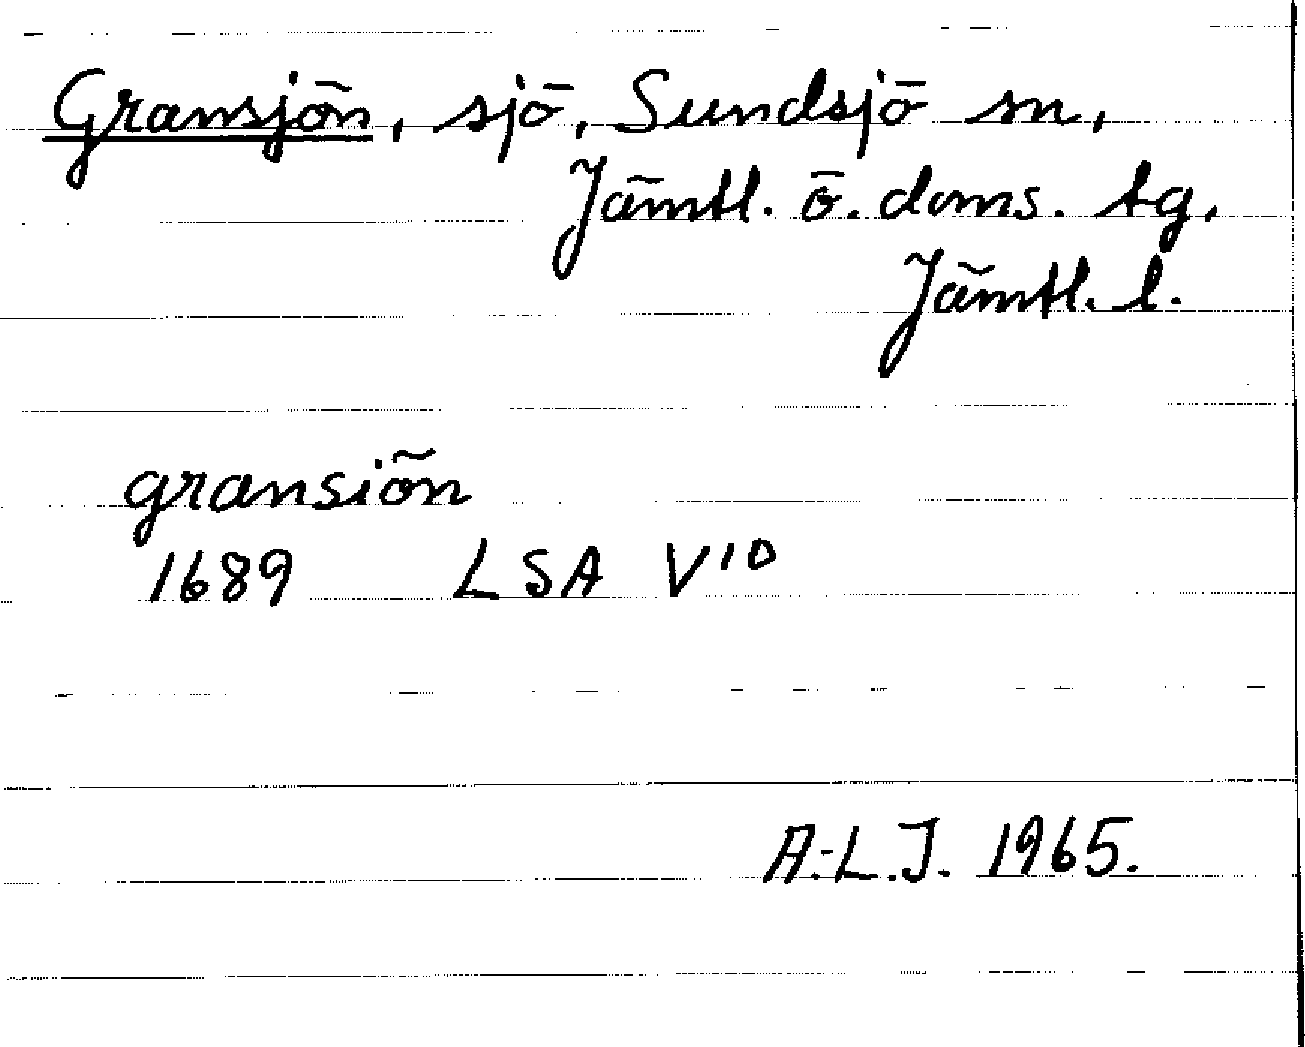 Gransjön, sjö, Sundsjö sn,
Jämtl. ö. doms. tg,
Jämtl. l.
gransiön
1689 LSA V10
A.-L.J. 1965.